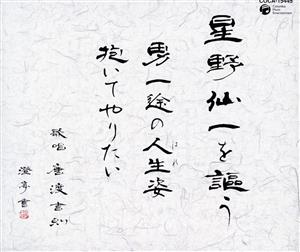 星野仙一を謳う
男一途の人生姿
はれ
抱いてやりたい
歌唱 唐渡吉則